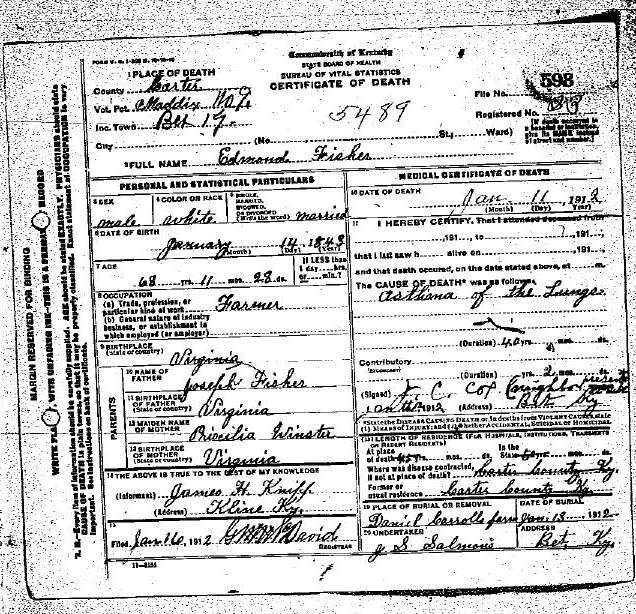 FORM V. S. 1-
Commonwealth of Kentucky
STATE BOARD OF HEALTH
BUREAU OF VITAL STATISTICS
CERTIFICATE OF DEATH
1 PLACE OF DEATH
County Carter
Vot. Pct. Maddix
Inc. Town Bet Ky.
City
(No. St., Ward)
File No. 593
Registered No.
[If death occurred in a hospital or institution give its NAME instead of street and number.]
5489
2 FULL NAME Edmond Fisher
PERSONAL AND STATISTICAL PARTICULARS
3 SEX male
4 COLOR OR RACE white
5 SINGLE, MARRIED, WIDOWED, OR DIVORCED (Write the word) married
6 DATE OF BIRTH January 14, 1843
(Month) (Day) (Year)
7 AGE 68 yrs. 11 mos. 28 ds.
If LESS than 1 day, hrs. or min.?
8 OCCUPATION
(a) Trade, profession, or particular kind of work Farmer
(b) General nature of industry business, or establishment in which employed (or employer)
9 BIRTHPLACE (State or country) Virginia
PARENTS
10 NAME OF FATHER Joseph Fisher
11 BIRTHPLACE OF FATHER (State or country) Virginia
12 MAIDEN NAME OF MOTHER Priscilia Winster
13 BIRTHPLACE OF MOTHER (State or country) Virginia
14 THE ABOVE IS TRUE TO THE BEST OF MY KNOWLEDGE
(Informant) James H. Knipp
(Address) Kline Ky.
15
Filed Jan 16, 1912 David
REGISTRAR
11-3184
MEDICAL CERTIFICATE OF DEATH
16 DATE OF DEATH Jan. 11, 1912
(Month) (Day) (Year)
17 I HEREBY CERTIFY, That I attended deceased from
191 , to 191 ,
that I last saw h alive on 191 ,
and that death occurred, on the date stated above, at m.
The CAUSE OF DEATH* was as follows:
Asthma of the Lungs
(Duration) 40 yrs. mos. ds.
Contributory
(Duration) yrs. 2 mos. ds.
(Signed) J. C. Cox
Jan 1912 (Address) Bet Ky
*State the DISEASE CAUSING DEATH, or, in deaths from VIOLENT CAUSES, state (1) Means of Injury; and (2) whether ACCIDENTAL, SUICIDAL or HOMICIDAL.
18 LENGTH OF RESIDENCE (FOR HOSPITALS, INSTITUTIONS, TRANSIENTS OR RECENT RESIDENTS)
At place of death yrs. mos. ds. In the State yrs. mos. ds.
Where was disease contracted, if not at place of death? Carter County Ky.
Former or usual residence Carter County Ky.
19 PLACE OF BURIAL OR REMOVAL Daniel Carrolls farm
DATE OF BURIAL Jan. 13, 1912
20 UNDERTAKER J. S. Salmons
ADDRESS Bet, Ky.
MARGIN RESERVED FOR BINDING
WRITE PLAINLY, WITH UNFADING INK—THIS IS A PERMANENT RECORD